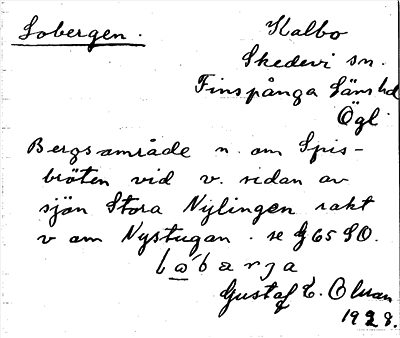 Lobergen.
Kalbo
Skedevi sn.
Finspånga Länshd
Ögl.
Bergsområde n. om Spis-
bröten vid v. sidan av
sjön Stora Nylingen rakt
v om Nystugan. se G65 SO.
Gustaf E. Olsson
1928.